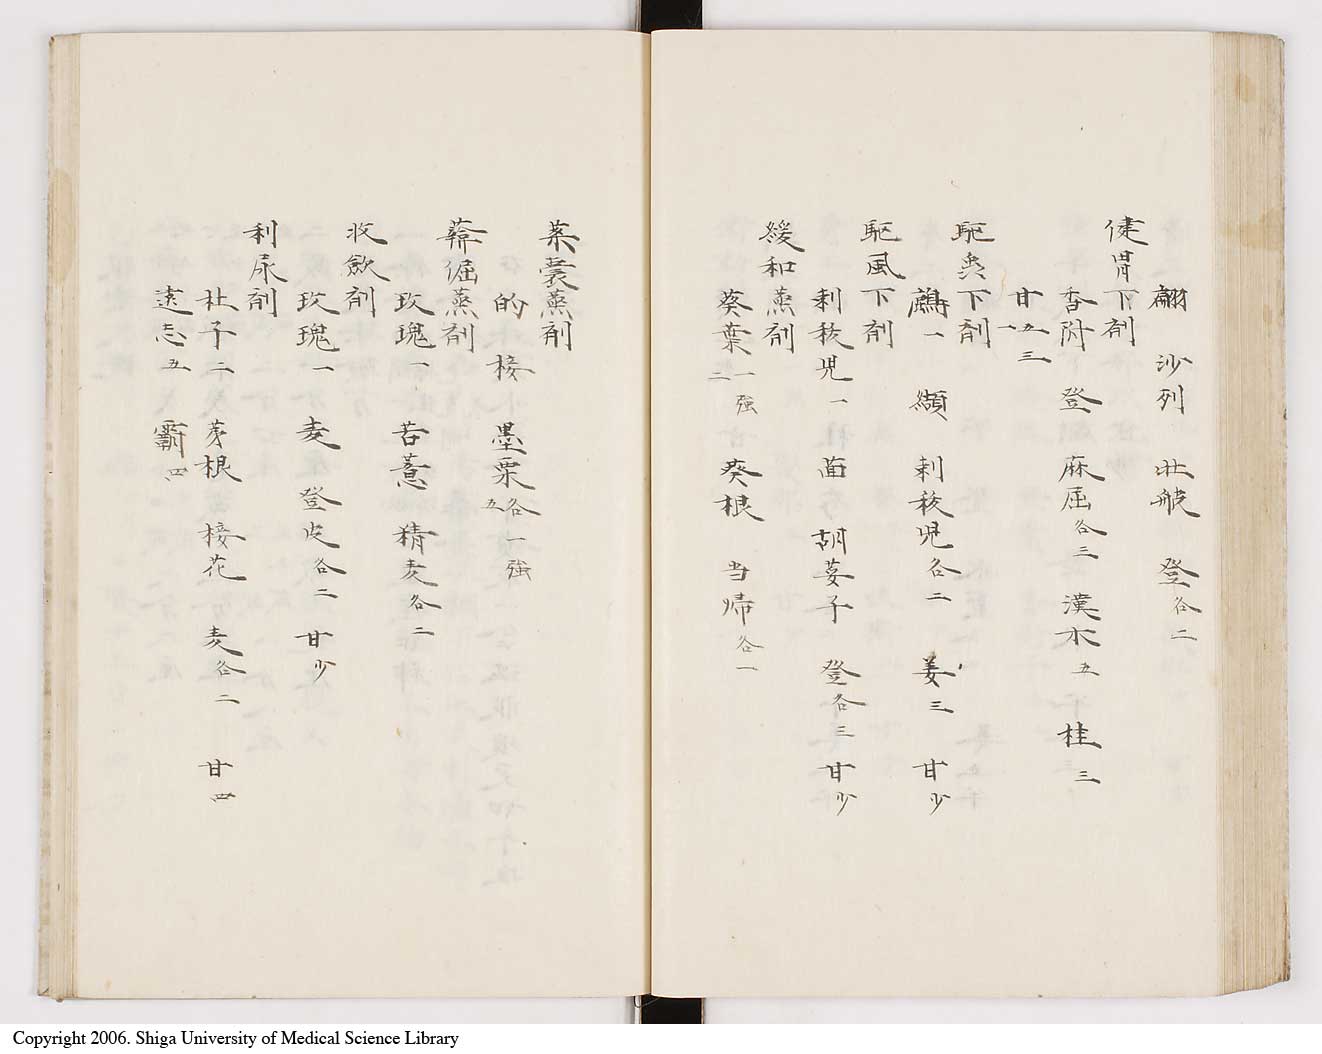 沙列 壮蛻 登各二
健胃下剤
香附 登 麻屈各三 漢水五 桂三
甘一五三
駆虫下剤
鷓一 纈 刺賿児各二 姜三 甘少
駆風下剤
刺賿児一 茴 胡荽子 登各三 甘少
緩和蒸剤
葵葉一強二 葵根 当帰各一
菜嚢蒸剤
的 接 墨栗各一強五
蒸剤
玫瑰一 苦薏 精麦各二
収歛剤
玫瑰一 麦 登皮各二 甘少
利尿剤
杜子二 茅根 接花 麦各二 甘四
遠志五 四
Copyright 2006. Shiga University of Medical Science Library